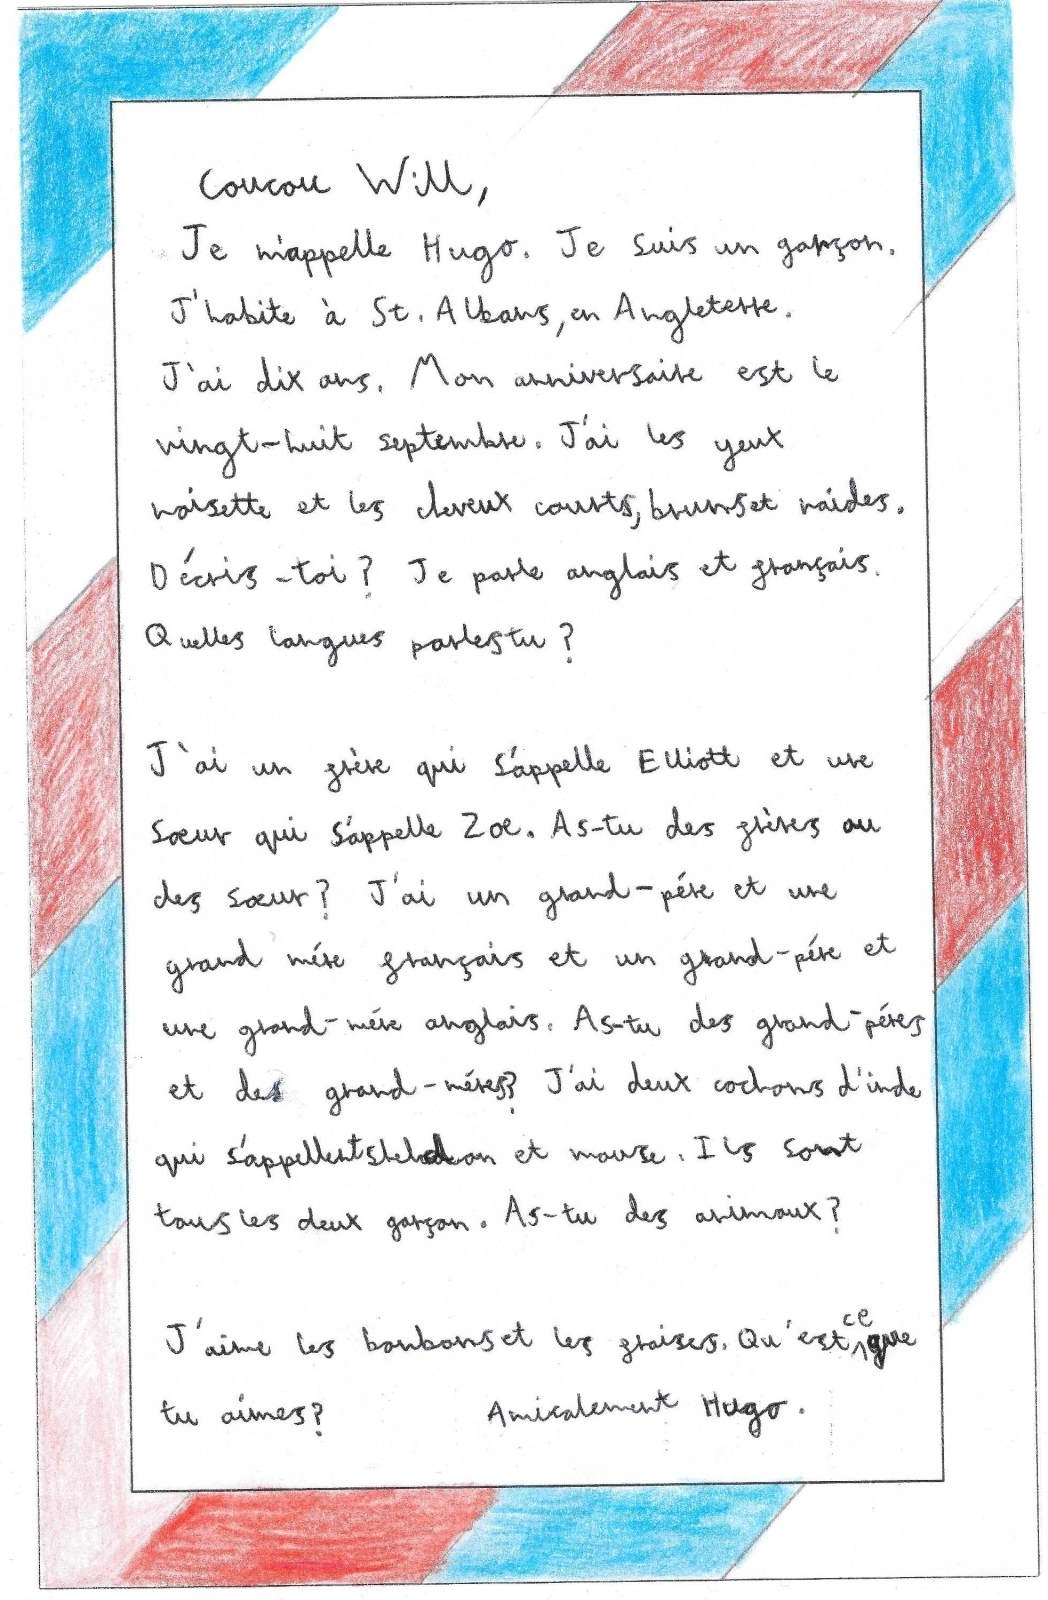 Coucou Will,
Je m'appelle Hugo. Je suis un garçon.
J'habite à St. Albans, en Angleterre.
J'ai dix ans. Mon anniversaire est le
vingt-huit septembre. J'ai les yeux
noisette et les cheveux courts, bruns et raides.
Décris-toi? Je parle anglais et français.
Quelles langues parles tu?
J'ai un frère qui s'appelle Elliott et une
soeur qui s'appelle Zoe. As-tu des frères ou
des soeur? J'ai un grand-pére et une
grand mére français et un grand-pére et
une grand-mére anglais. As-tu des grand-péres
et des grand-méres? J'ai deux cochons d'inde
qui s'appellent et mouse. Ils sont
tous les deux garçon. As-tu des animaux?
J'aime les bonbons et les fraises. Qu'est ce que
tu aimes? Amicalement Hugo.